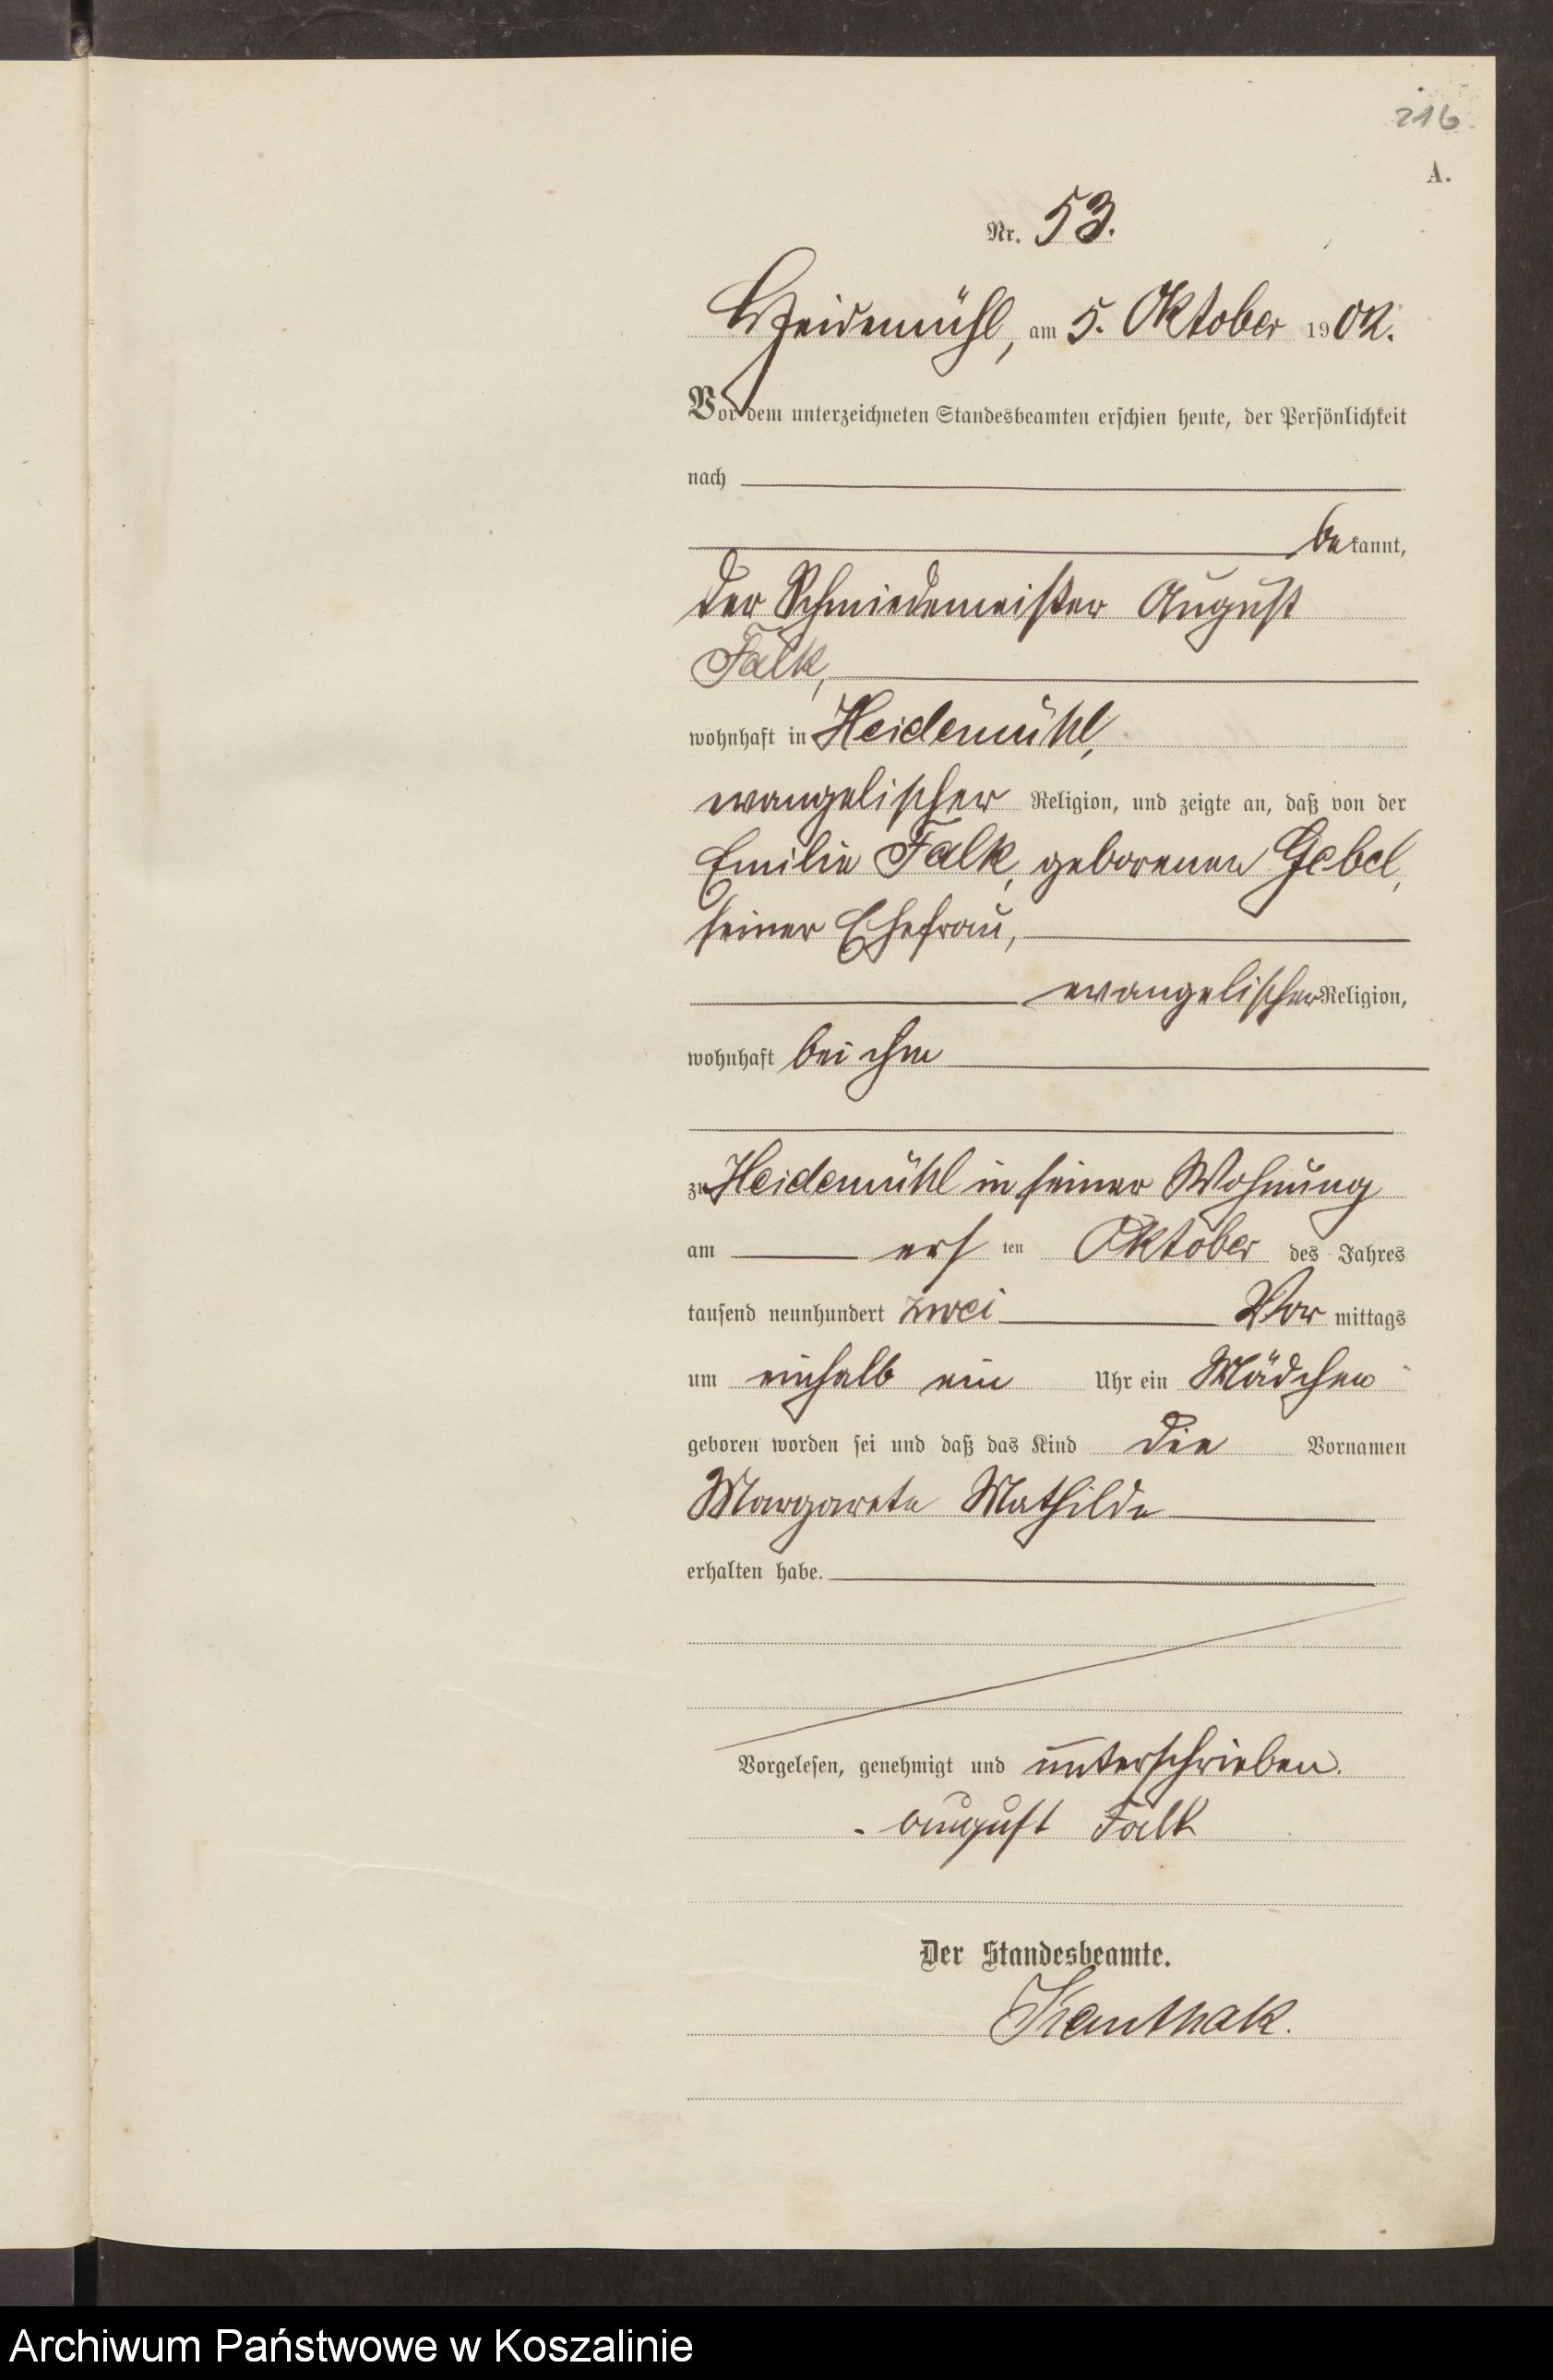 216
A.
Nr. 53.
Heidemühl, am 5. Oktober 1902.
Vor dem unterzeichneten Standesbeamten erschien heute, der Persönlichkeit
nach
bekannt,
der Schmiedemeister August
Falk,
wohnhaft in Heidemühl,
evangelischer Religion, und zeigte an, daß von der
Emilie Falk, geborenen Gebel,
seiner Ehefrau,
evangelischer Religion,
wohnhaft bei ihm
zu Heidemühl in seiner Wohnung
am ersten Oktober des Jahres
tausend neunhundert zwei Vormittags
um einhalb ein Uhr ein Mädchen
geboren worden sei und daß das Kind die Vornamen
Margarete Mathilde
erhalten habe.
Vorgelesen, genehmigt und unterschrieben.
August Falk
Der Standesbeamte.
Kanthak.
Archiwum Państwowe w Koszalinie